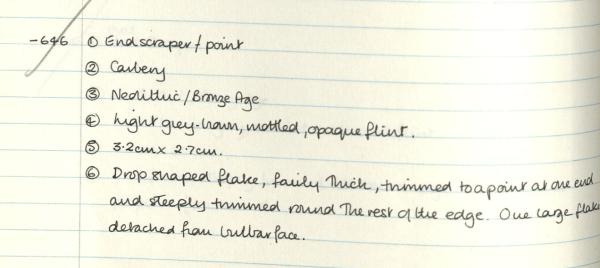 -646 ① Endscraper/point
② Carbery
③ Neolithic/Bronze Age
④ Light grey-brown, mottled, opaque flint.
⑤ 3.2cm x 2.7cm.
⑥ Drop shaped flake, fairly thick, trimmed to a point at one end
and steeply trimmed round the rest of the edge. One large flake
detached from bulbar face.